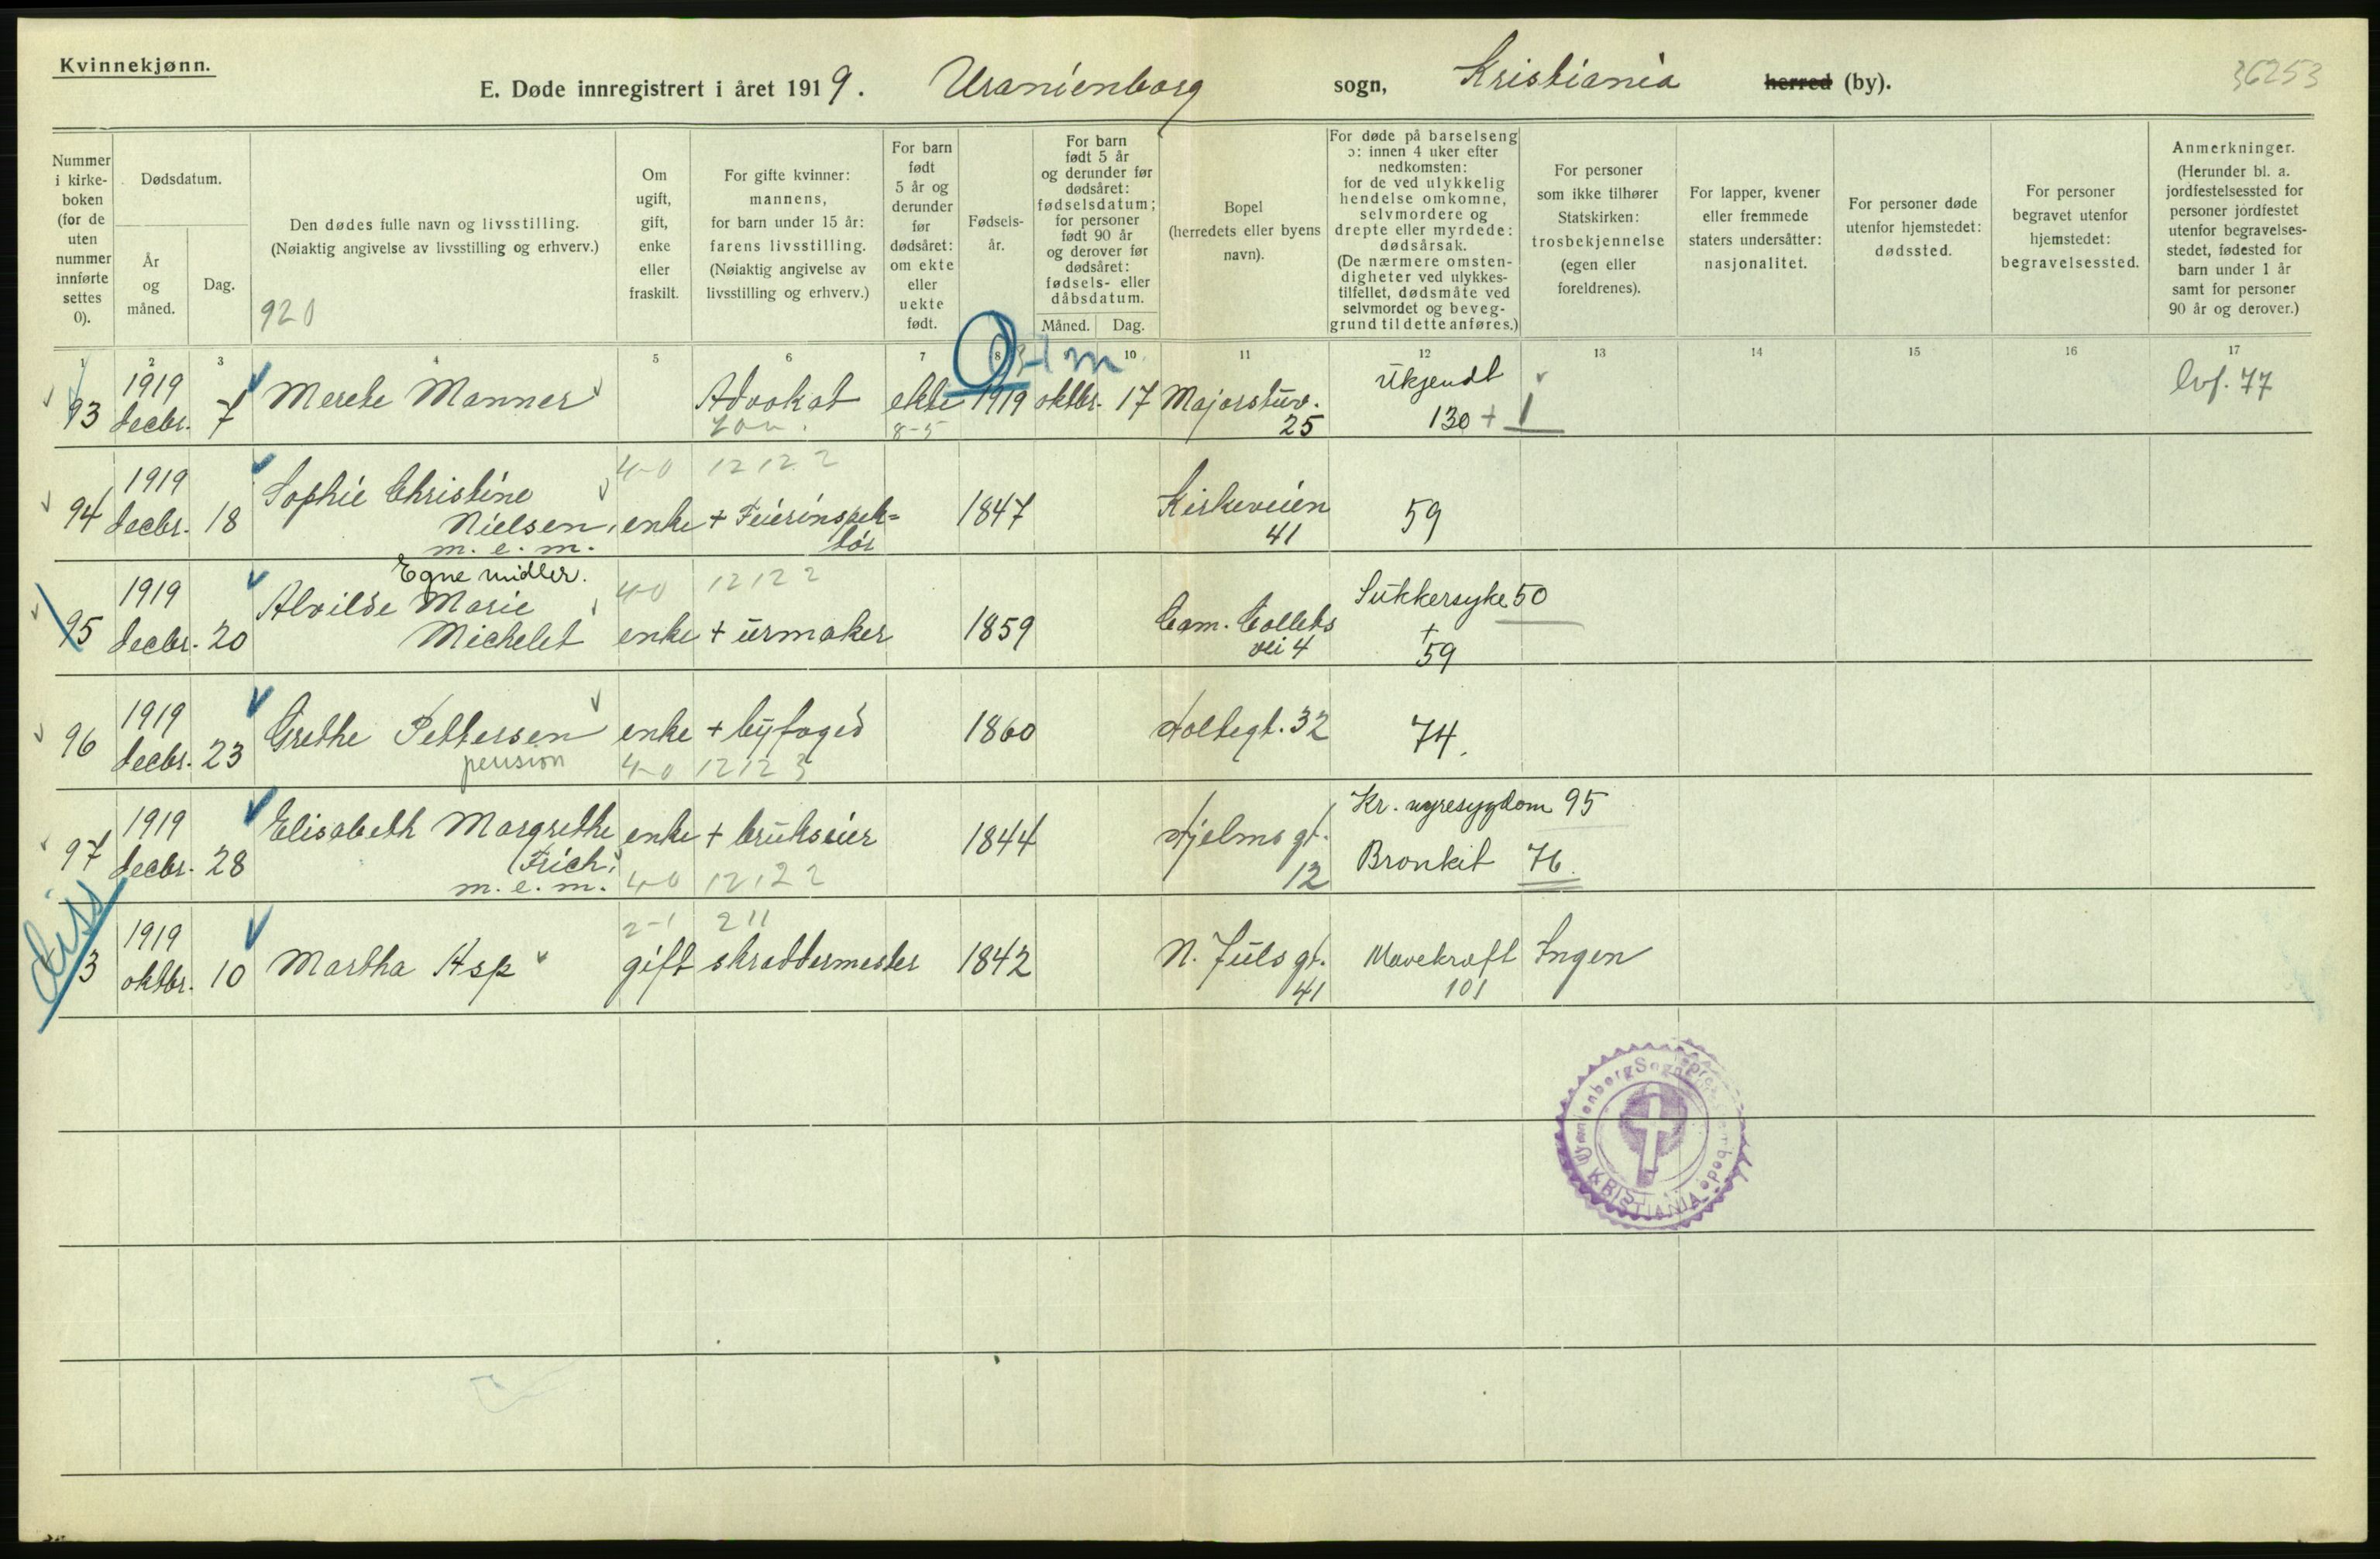 Kvinnekjønn.
E. Døde innregistrert i året 1919. Uranienborg sogn, Kristiania herred (by).
36253
Nummer i kirke-boken (for de uten nummer innførte settes 0).
Dødsdatum.
År og måned.
Dag.
Den dødes fulle navn og livsstilling.
(Nøiaktig angivelse av livsstilling og erhverv.)
920
Om ugift, gift, enke eller fraskilt.
For gifte kvinner: mannens, for barn under 15 år: farens livsstilling. (Nøiaktig angivelse av livsstilling og erhverv.)
For barn født 5 år og derunder før dødsåret: om ekte eller uekte født.
Fødsels-år.
For barn født 5 år og derunder før dødsåret: fødselsdatum; for personer født 90 år og derover før dødsåret: fødsels- eller dåbsdatum.
Måned.
Dag.
Bopel (herredets eller byens navn).
For døde på barselseng ɔ: innen 4 uker efter nedkomsten: for de ved ulykkelig hendelse omkomne, selvmordere og drepte eller myrdede: dødsårsak. (De nærmere omsten-digheter ved ulykkes-tilfellet, dødsmåte ved selvmordet og beveg-grund til dette anføres.)
For personer som ikke tilhører Statskirken: trosbekjennelse (egen eller foreldrenes).
For lapper, kvener eller fremmede staters undersåtter: nasjonalitet.
For personer døde utenfor hjemstedet: dødssted.
For personer begravet utenfor hjemstedet: begravelsessted.
Anmerkninger. (Herunder bl. a. jordfestelsessted for personer jordfestet utenfor begravelses-stedet, fødested for barn under 1 år samt for personer 90 år og derover.)
1 2 3 4 5 6 7 8 10 11 12 13 14 15 16 17
93 1919 decbr. 7 Merete Manner Advokat ekte 1919 oktbr. 17 Majorstuv. 25 Ukjendt 130 + 1
8-5
94 1919 decbr. 18 Sophie Christine Nielsen, enke + Feierinspek=tør 1847 Kirkeveien 41 59
m. e. m.
4-0 12 12 2
95 1919 decbr. 20 Alvilde Marie Michelet enke + urmaker 1859 Cam. Colletts vei 4 Sukkersyke 50 + 59
Egne midler.
4-0 12 12 2
96 1919 decbr. 23 Grethe Pettersen enke + byfoged 1860 Holtegt. 32 74.
pension
4-0 12 12 3
97 1919 decbr. 28 Elisabeth Margrethe Frich, enke + brukseier 1844 Hjelms gt. 12 Kr. nyresygdom 95
Bronkit 76.
m. e. m.
4-0 12 12 2
Diss
3 1919 oktbr. 10 Martha Asp gift skreddermester 1842 N. Juls gt. 41 Mavekræft 101 Ingen
2-1 2 11
Uranienborg Sogneprestembede
KRISTIANIA